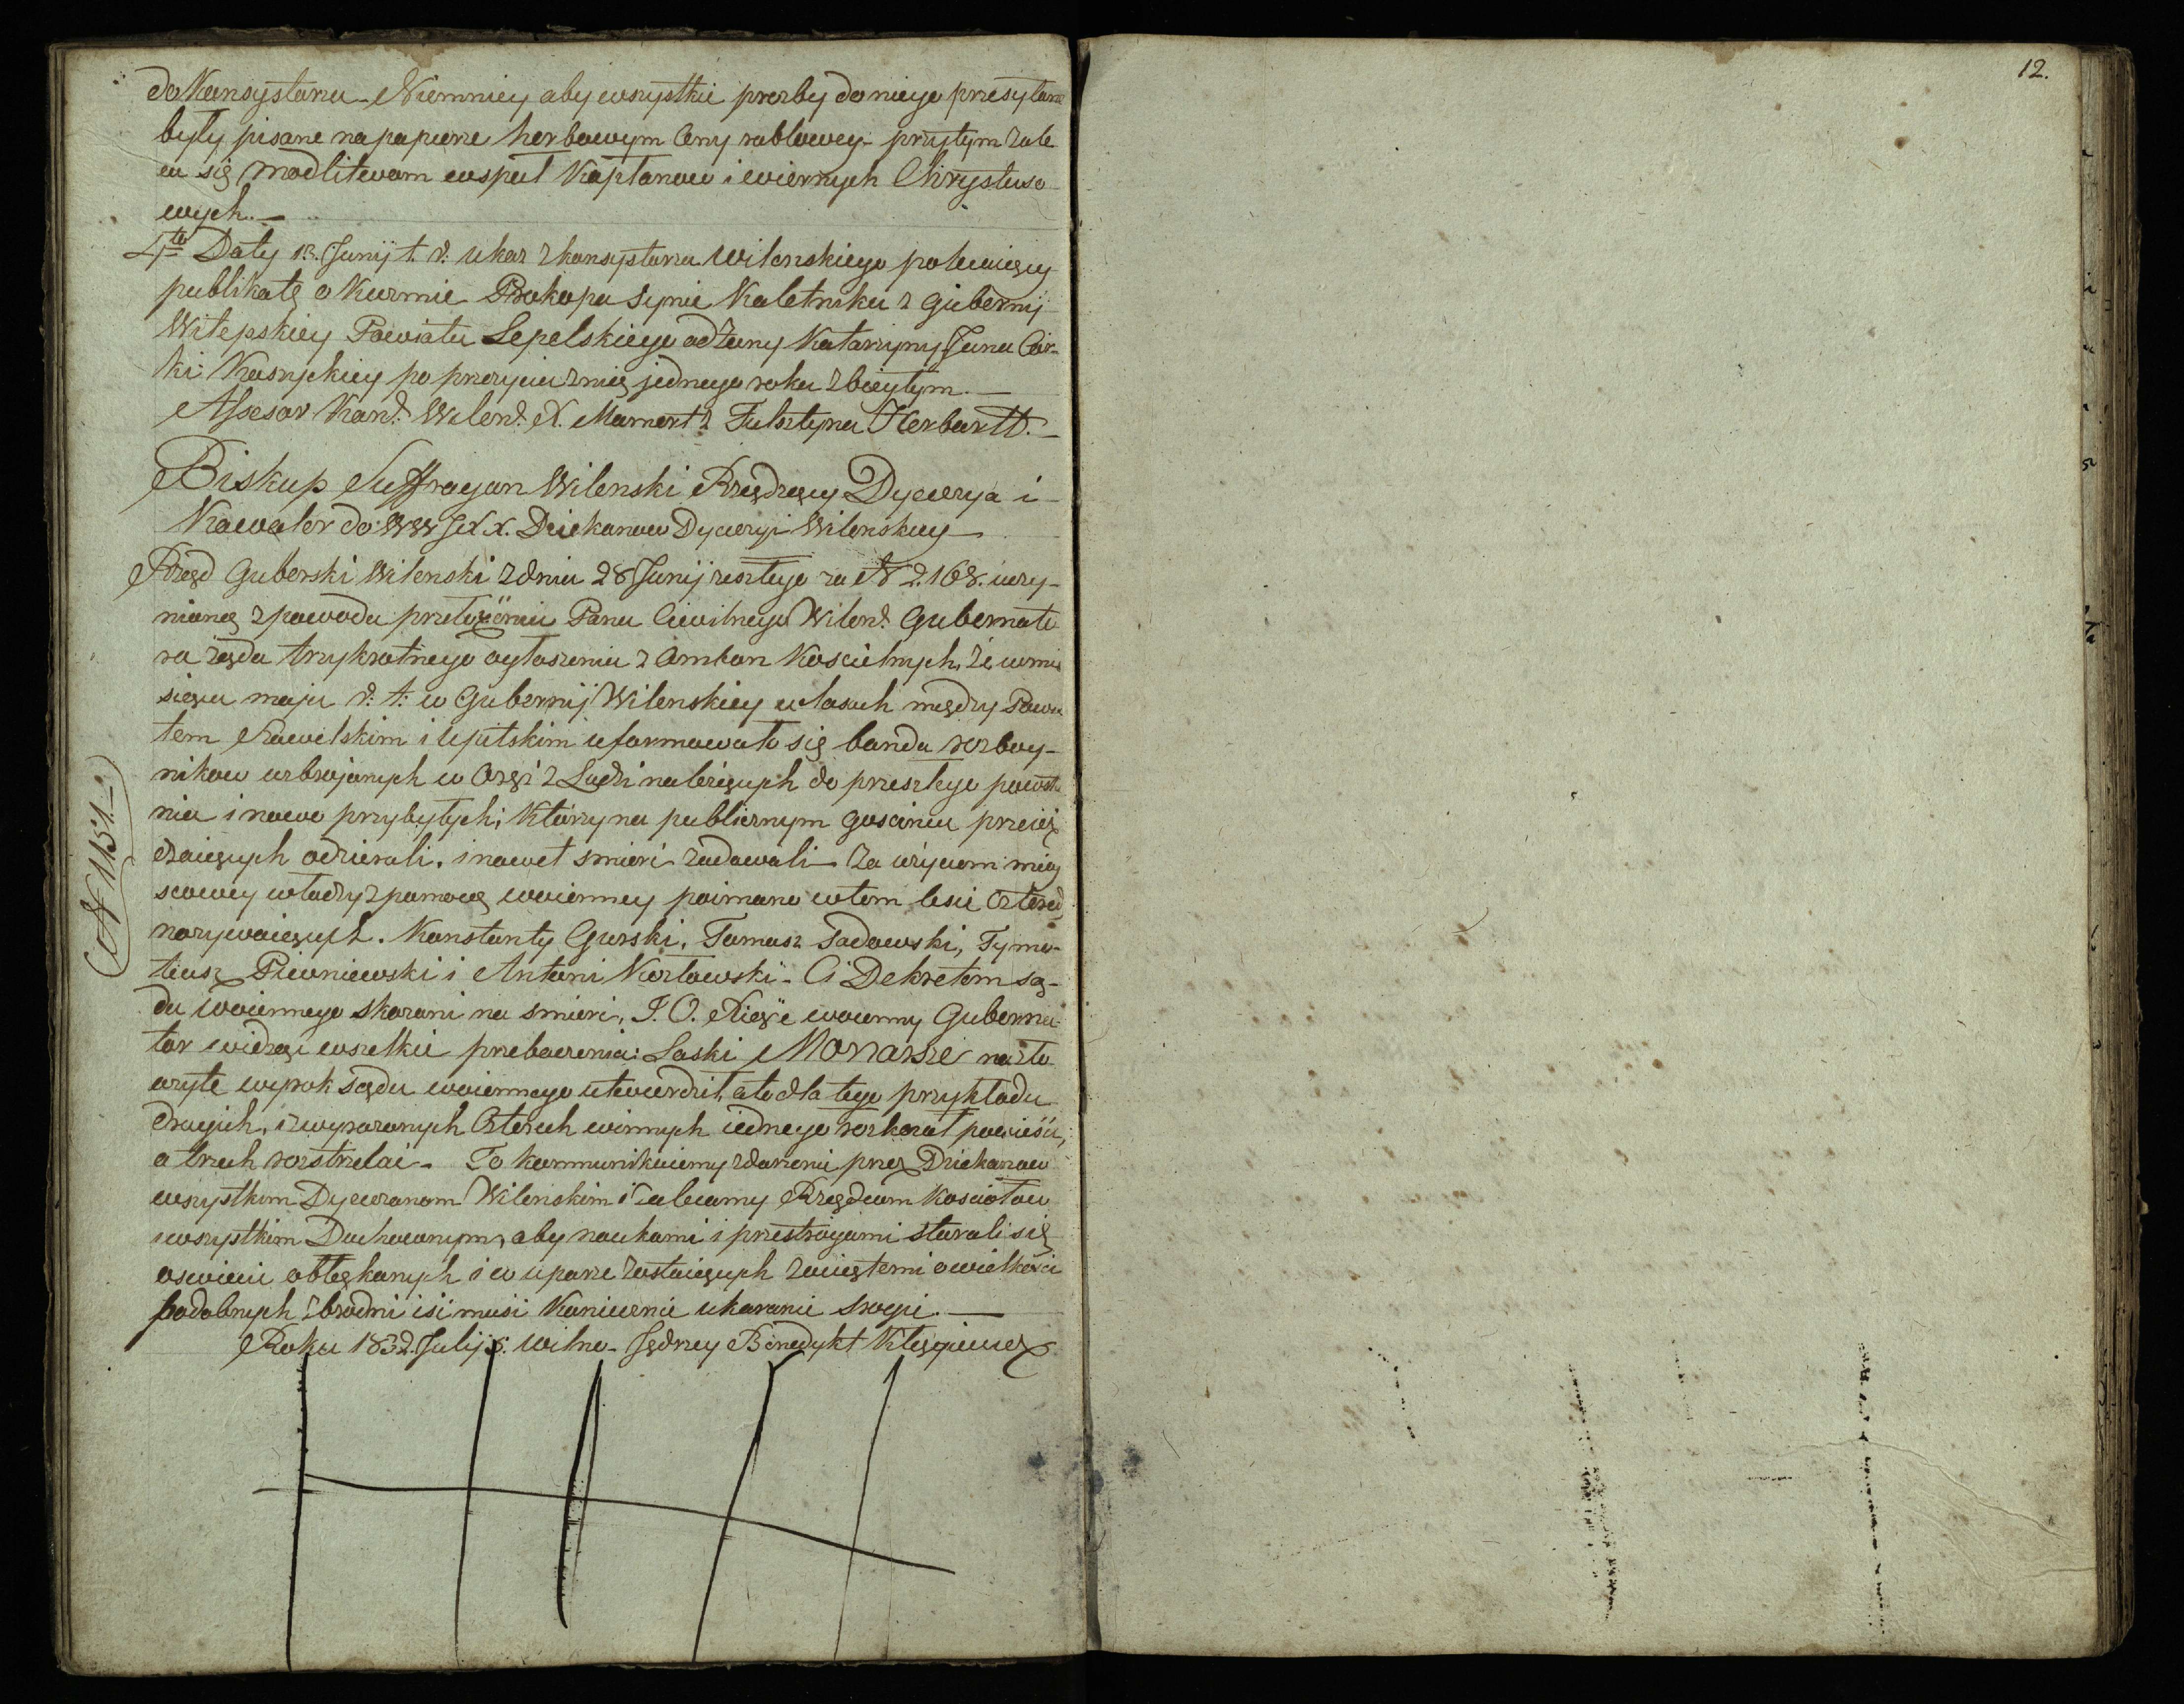 do Konsystoru. Niemniey aby wszystkie prozby do niego przesyłane
były pisane na papierze herbowym Ceny rublowey. przytym zale
ca się modlitwom wspuł Kapłanow i wiernych Chrystuso
wych. —
4to Daty 13. Junij t. r. ukaz z konsystorza Wilenskiego polecaiący
publikatę o Kuzmie Prokopa synie Kaletniku z Gubernij
Witepskiey Powiatu Lepelskiego od żony Katarzyny Jana Cór-
ki po przeżyciu z nią jednego roku zbiegłym. —
Assesor Kano. Wileno. X. Mamert z Fulsztyna Herburtt. —
Biskup Suffragan Wilenski Rządzący Dyecezya i
Kawaler do WW JXX. Dziekanow Dyecezyi Wilenskiey —
Rząd Guberski Wilenski z dnia 28 Junij zeszłego za N 2.168. uczy-
nioną z powodu przełożenia Pana Ciwilnego Wileno. Gubernato
ra żąda trzykrotnego ogłoszenia z Ambon Koscielnych, że w mie
siącu maju r. t. w Gubernij Wilenskiey w lasach między Powia
tem Kowelskim i Upitskim uformowała się banda rozboy-
nikow uzbrojonych w Oręż z Ludzi należących do przeszłego powsta
nia i nowo przybyłych, Którzy na publicznym goscincu przeież
dzaiących odzierali, i nawet smierć zadawali — Za użyciem miey
scowey władzy z pomocą woienney poimano w tem lesie Czterech
nazywaiących. Konstanty Gurski, Tomasz Sadowski, Tymo-
teusz Piewniewski i Antoni Kozłowski. Ci Dekretem są-
du woiennego skazani na smierć, J. O. Xiąże woienny Guberna-
tor widząc wszelkie przebaczenia: Łaski Monarsze na zło
użyte wyrok sądu woiennego utwierdził, ale dla tego przykładu
drugich, z wyrażonych Czterech winnych iednego rozkazał powiesić,
a trzech rozstrzelać. To kommunikuiemy zdarzenie przez Dziekanow
wszystkim Dyecezanom Wilenskim i zalecamy Rządcom Kosciołow
i wszystkim Duchownym, aby naukami i przestrogami starali się
oswiecić obłąkanych i w uporze zostaiących zaiętemi o wielkości
podobnych zbrodni i iż musi Koniecznie ukaranie srogie. —
Roku 1832. Julij 8. Wilno. Jędrzey Benedykt Kłągiewicz
N 1151.
12.